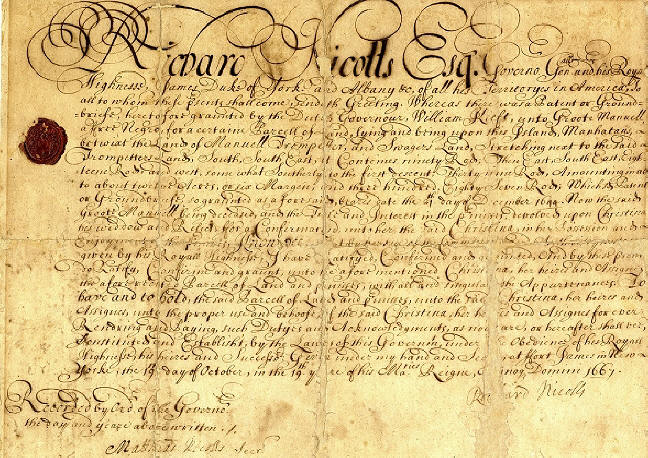 Richard Nicolls Esq. Governo. Gen. and his Roya
Highnesse James Duke of York and Albany &c. of all his Territoryes in America, To
all to whom these p'sents shall come, send Greeting. Whereas there was a Patent or Ground-
briefe, heretofore graunted by the Dutch Governour, William Kieft, unto Groote Manuell
a free Negro, for a certaine Parcell of Land, lying and being upon this Island, Manhatans,
betwixt the Land of Manuell Trompeter, and Swagers Land, Stretching next to the said
Trompitters Land, South, South East, it Containes ninety Rod, Then East, South East, Eigh
teene Rod, and west, some what Southerly to the first descent, Thirty nine Rod, Amounting
to about twelve Acres, or six Margen, and three hundred, Eighty Seven Rod; Which Patent
or Groundbriefe, so graunted as aforesaid, beares date the day of December 1644. Now the said
Groote Manuell being deceased, and the and Interest in the p'misses devolved upon Christina
his weddow and Relict; for a Confirmat unto her the said Christina, in her Possession and
Enjoyment of the Premises; Know
given by his Royall Highnesse, I have Ratifyed, Confirmed and graunted, and by these p'sen
do Ratify, Confirme and graunt, unto the afore mentioned Christina, her heires and Assignes
the aforesaid Parcell of Land and p'misses, with all and singular the Appurtenances. To
have and to hold, the said Parcell of Land and p'misses, unto the said Christina, her heires and
Assignes, unto the proper use and behoofe of the said Christina, her heires and Assignes for ever
Rendring and Paying, such Dutyes and Acknowledgments, as now are, or hereafter shall bee,
Constituted and Establisht, by the Lawes of this Governm, under the Obedience of his Royall
Highnesse, his heires and Successrs. Given under my hand and Seale at Fort James in New
Yorke, the day of October, in the 19th yeare of his Maties Reigne, Annoq Domini 1667.
Richard Nicolls
Recorded by Ordr of the Governor
the day and yeare above written.
Matthias Nicolls Secr